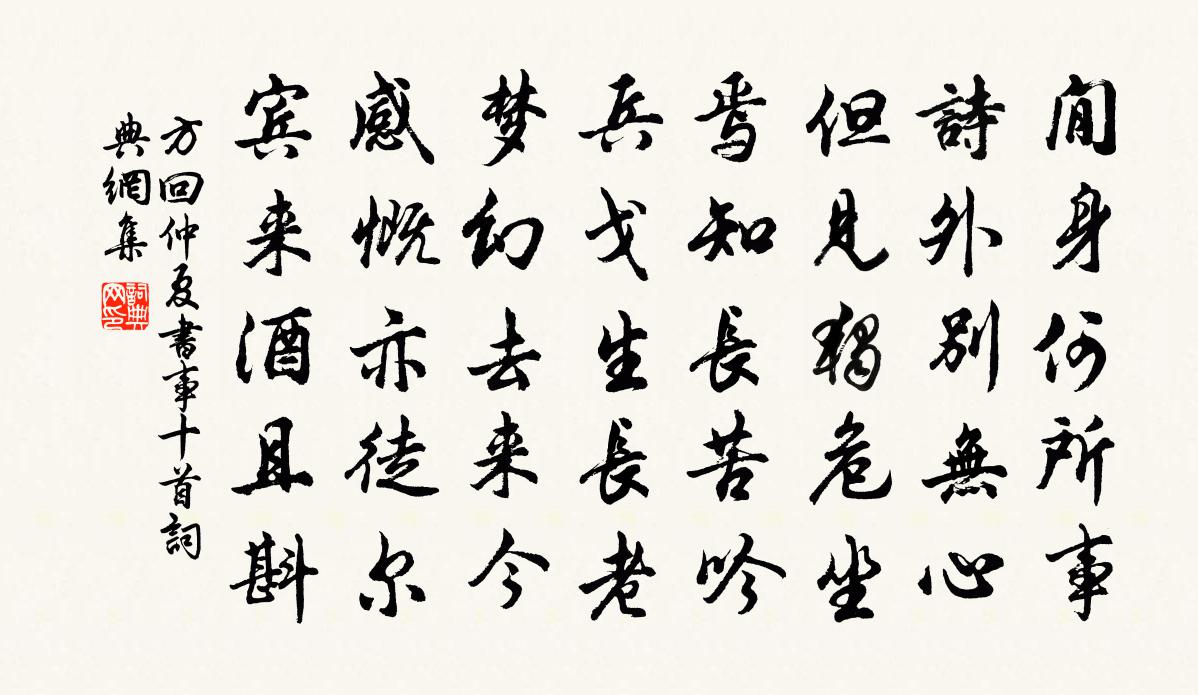 閒身何所事
詩外別無心
但見獨危坐
焉知長苦吟
兵戈生長老
梦幻去来今
感慨亦徒尔
宾来酒且斟
方回仲夏書事十首詞
典網集
詞典
网印